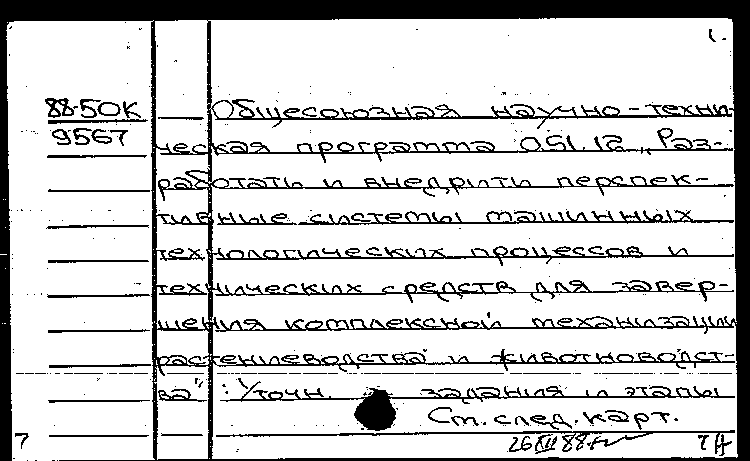 1.
88-50К
9567
Общесоюзная научно-техни-
ческая программа 0.51.12 „Раз-
работать и внедрить перспек-
тивные системы машинных
технологических процессов и
технических средств для завер-
шения комплексной механизации
растениеводства и животноводст-
ва" : Уточн. задания и этапы
Ст. след. карт.
7
26 XII 88